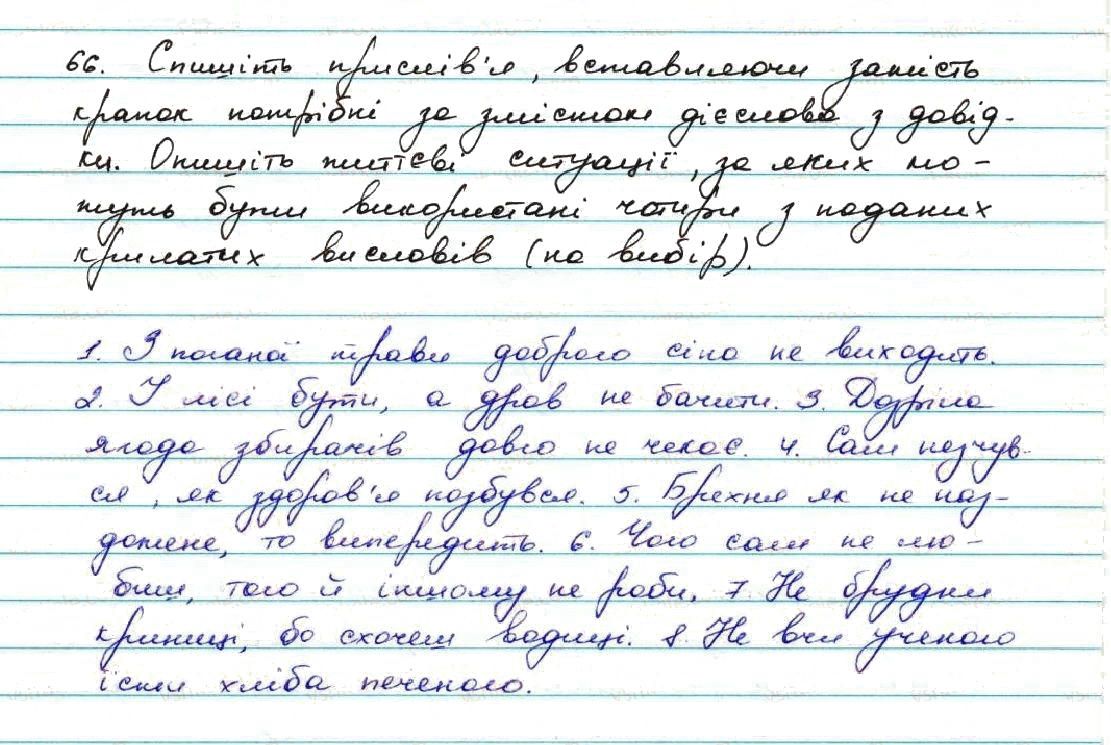 66. Спишіть прислів'я, вставляючи замість
крапок потрібні за змістом дієслова з довід-
ки. Опишіть життєві ситуації, за яких мо-
жуть бути використані чотири з поданих
крилатих висловів (на вибір).
1. З поганої трави доброго сіна не виходить.
2. У лісі бути, а дров не бачити. 3. Дозріла
ягода збирачів довго не чекає. 4. Сам незчув-
ся, як здоров'я позбувся. 5. Брехня як не наз-
дожене, то випередить. 6. Чого сам не лю-
биш, того й іншому не роби. 7. Не брудни
криниці, бо схочеш водиці. 8. Не вчи ученого
їсти хліба печеного.